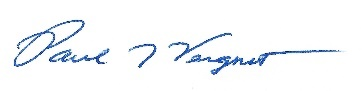 Paul T Vergnet